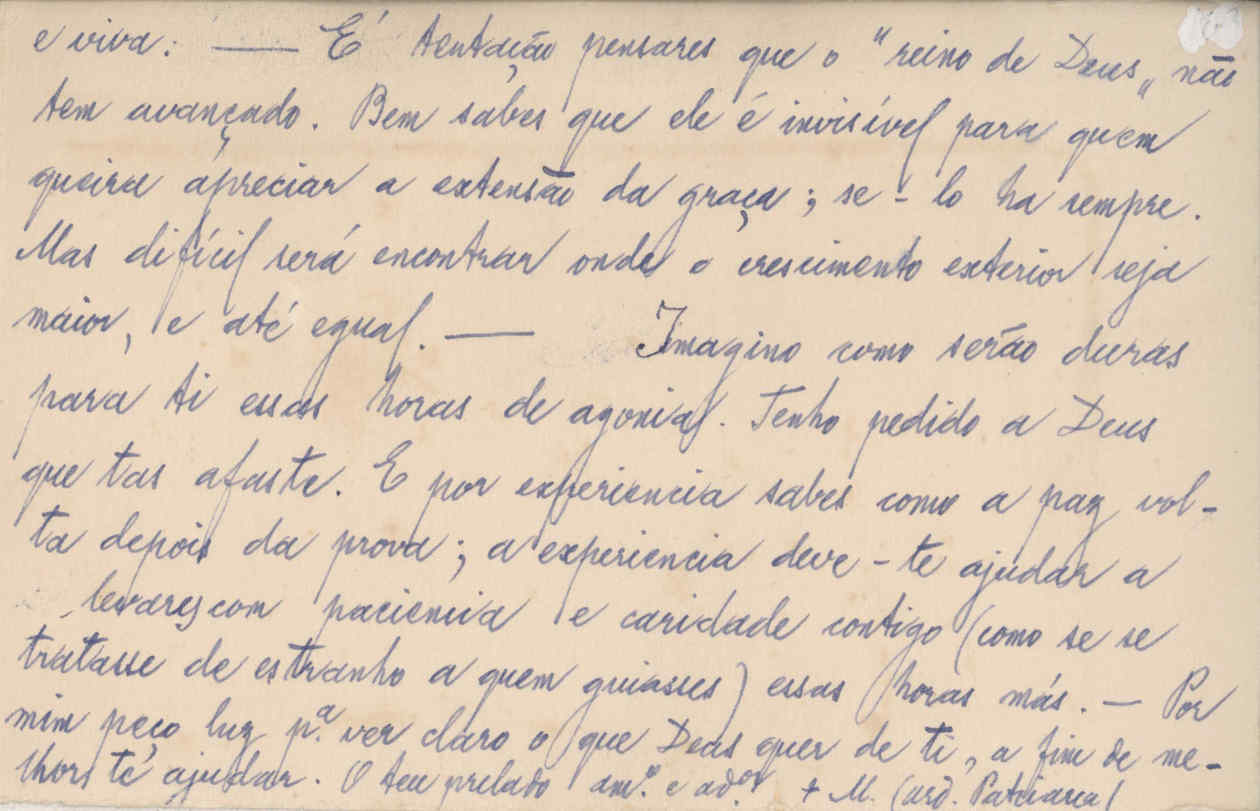 e viva. — É tentação pensares que o "reino de Deus„ não
tem avançado. Bem sabes que ele é invisível para quem
queira apreciar a extensão da graça; se-lo ha sempre.
Mas difícil será encontrar onde o crescimento exterior seja
maior, e até egual. — Imagino como serão duras
para ti essas horas de agonia. Tenho pedido a Deus
que tas afaste. E por experiencia sabes como a paz vol-
ta depois da prova; a experiencia deve-te ajudar a
levares com paciencia e caridade contigo (como se se
tratasse de estranho a quem guiasses) essas horas más. — Por
mim peço luz p.ª ver claro o que Deus quer de ti, a fim de me-
lhor te ajudar. O teu prelado am.º e ad.or + M. Card. Patriarca